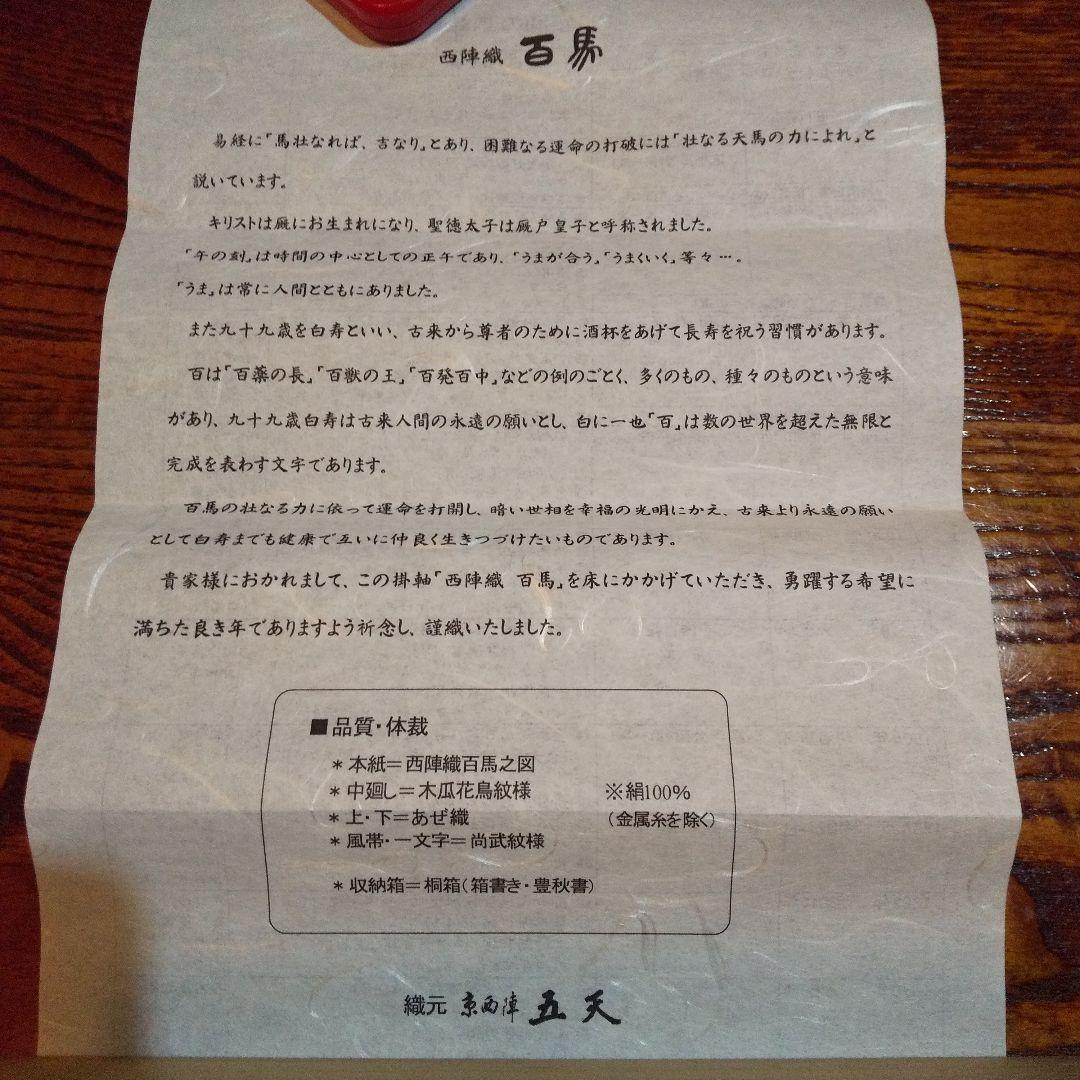 西陣織 百馬
易経に「馬壮なれば、吉なり」とあり、困難なる運命の打破には「壮なる天馬の力によれ」と
説いています。
キリストは厩にお生まれになり、聖徳太子は厩戸皇子と呼称されました。
「午の刻」は時間の中心としての正午であり、「うまが合う」、「うまくいく」等々…。
「うま」は常に人間とともにありました。
また九十九歳を白寿といい、古来から尊者のために酒杯をあげて長寿を祝う習慣があります。
百は「百薬の長」、「百獣の王」、「百発百中」などの例のごとく、多くのもの、種々のものという意味
があり、九十九歳白寿は古来人間の永遠の願いとし、白に一也「百」は数の世界を超えた無限と
完成を表わす文字であります。
百馬の壮なる力に依って運命を打開し、暗い世相を幸福の光明にかえ、古来より永遠の願い
として白寿までも健康で互いに仲良く生きつづけたいものであります。
貴家様におかれまして、この掛軸「西陣織 百馬」を床にかかげていただき、勇躍する希望に
満ちた良き年でありますよう祈念し、謹織いたしました。
■品質・体裁
＊本紙＝西陣織百馬之図
＊中廻し＝木瓜花鳥紋様 ※絹100%
＊上・下＝あぜ織 (金属糸を除く)
＊風帯・一文字＝尚武紋様
＊収納箱＝桐箱(箱書き・豊秋書)
織元 京西陣 五天